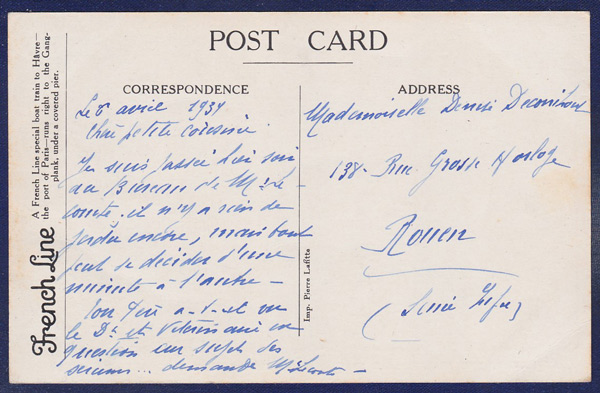 POST CARD
CORRESPONDENCE
ADDRESS
French Line
A French Line special boat train to Hâvre—
the port of Paris—runs right to the Gang-
plank, under a covered pier.
Imp. Pierre Lafitte
Le 8 avril 1937
Chère petite cousine
Je suis passée hier soir
au Bureau de Mr Le
comte. il n'y a rien de
perdu encore, mais tout
peut se décider d'une
minute à l'autre —
a-t-il vu
le Dr et Vétérinaire en
question au sujet des
demande Mr Lecomte —
Mademoiselle Denise
138. Rue Grosse Horloge
Rouen
(Seine Infre)